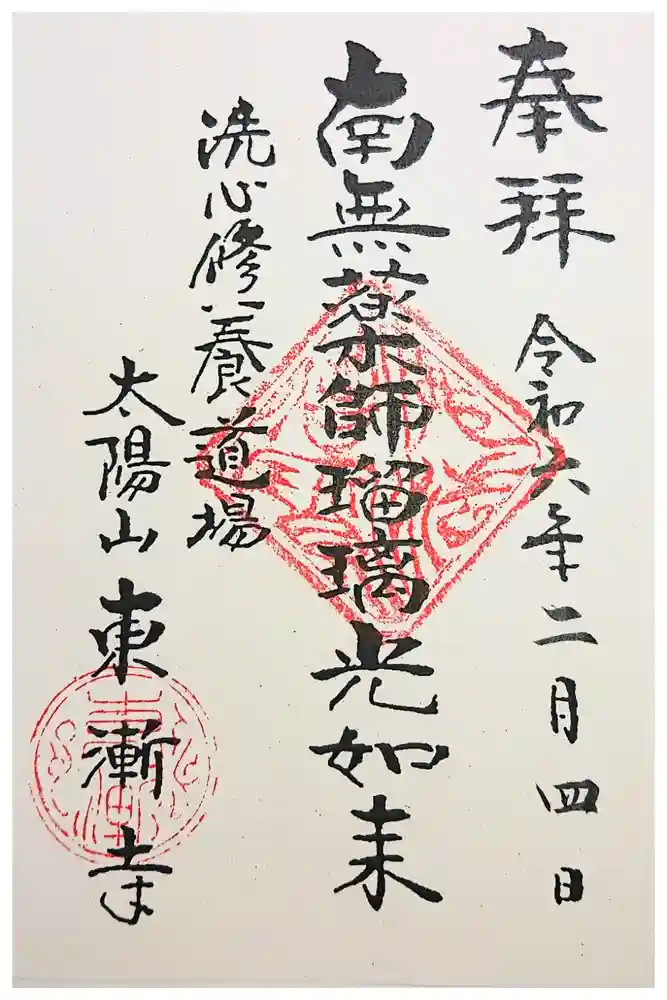 奉拝
令和六年二月四日
南無薬師瑠璃光如来
洗心修養道場
太陽山
東漸寺